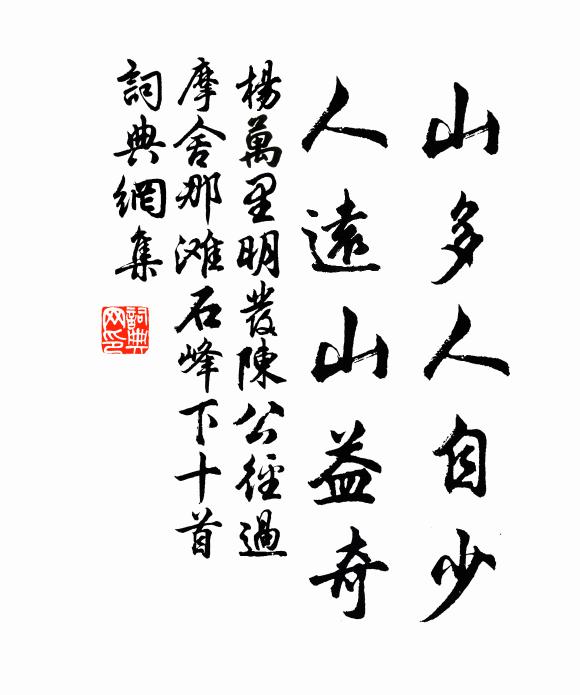 山多人自少
人遠山益奇
楊萬里明發陳公徑過
摩舍那滩石峰下十首
詞典網集
詞典网印